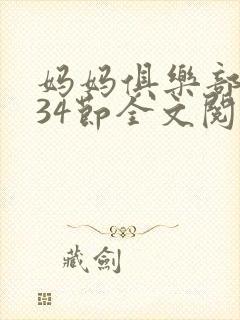 妈妈俱樂部
34節全文閱
藏劍